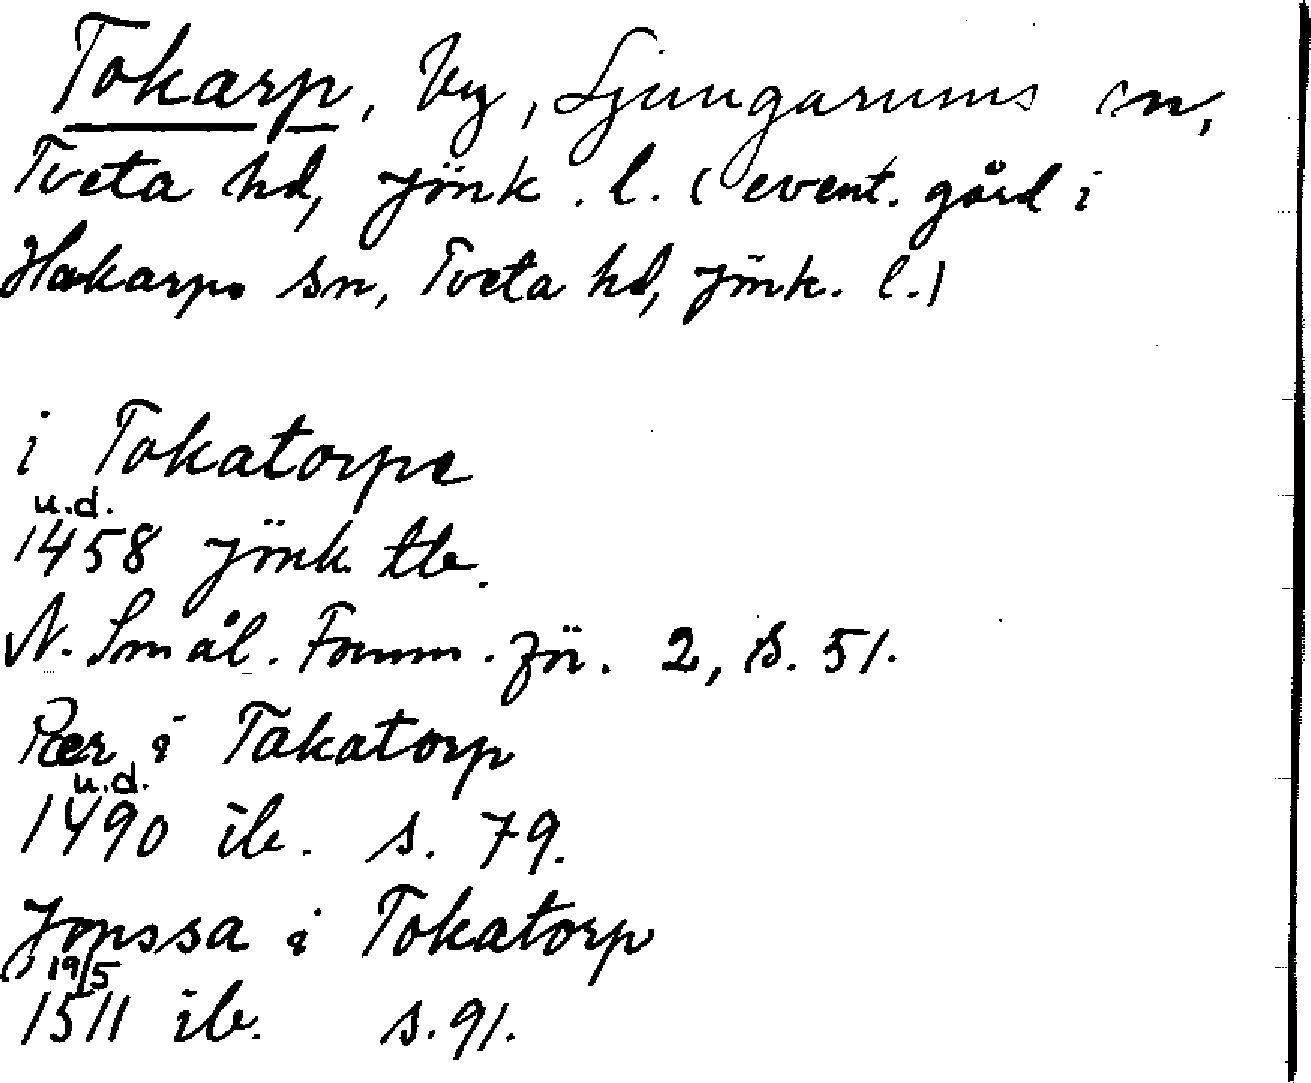 Tokarp, by, Ljungarums sn,
Tveta hd, Jönk. l. (event. gård i
Hakarps sn, Tveta hd, Jönk. l.)
i Tokatorpe
u.d.
1458 Jönk tb.
N. Smål. Fornm. för. 2, s. 51.
Pær i Takatorp
u.d.
1490 ib. s. 79.
Jonssa i Tokatorp
19/5
1511 ib. s. 91.